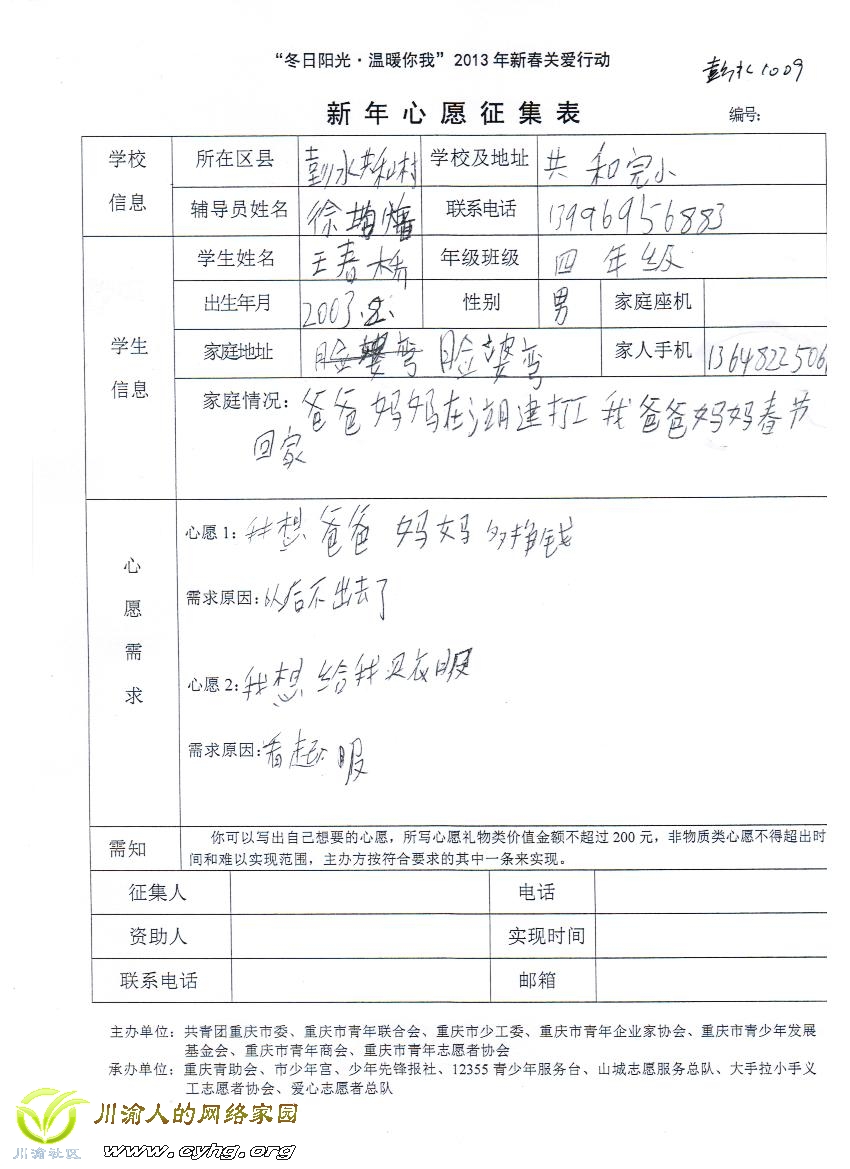 “冬日阳光·温暖你我”2013年新春关爱行动
彭水1009
新年心愿征集表
编号:
学校信息
所在区县 彭水共和村 学校及地址 共和完小
辅导员姓名 徐 联系电话 13996956883
学生信息
学生姓名 王春桥 年级班级 四年级
出生年月 2003. 性别 男 家庭座机
家庭地址 脸婆弯 脸婆弯 家人手机 1364822506
家庭情况: 爸爸妈妈在 建打工 我爸爸妈妈春节
回家
心愿需求
心愿1: 我想爸爸妈妈多挣钱
需求原因: 以后不出去了
心愿2: 我想给我买衣服
需求原因: 看起 服
需知
你可以写出自己想要的心愿，所写心愿礼物类价值金额不超过200元，非物质类心愿不得超出时
间和难以实现范围，主办方按符合要求的其中一条来实现。
征集人 电话
资助人 实现时间
联系电话 邮箱
主办单位：共青团重庆市委、重庆市青年联合会、重庆市少工委、重庆市青年企业家协会、重庆市青少年发展
基金会、重庆市青年商会、重庆市青年志愿者协会
承办单位：重庆青助会、市少年宫、少年先锋报社、12355青少年服务台、山城志愿服务总队、大手拉小手义
工志愿者协会、爱心志愿者总队
川渝人的网络家园
川渝社区 www.cyhg.org